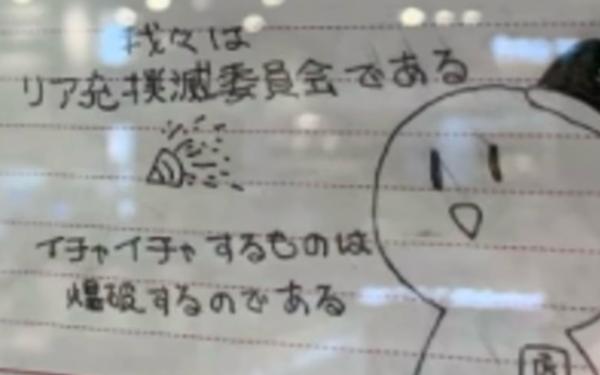 我々は
リア充撲滅委員会である
イチャイチャするものは
爆破するのである